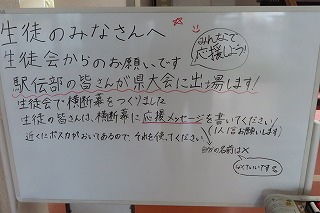 生徒のみなさんへ
生徒会からのお願いです
みんなで応援しよう!
駅伝部の皆さんが県大会に出場します!
生徒会で横断幕をつくりました
生徒の皆さんは、横断幕に応援メッセージを書いてください
(1人1つお願いします)
近くにポスカがおいてあるので、それを使ってください
自分の名前は×
なくていいです